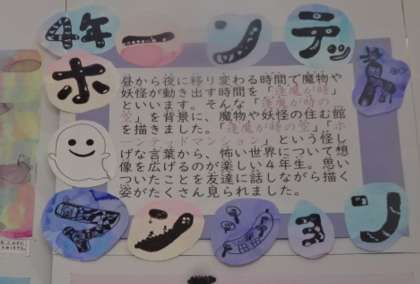 4年 ーンテッド
ホ
昼から夜に移り変わる時間で魔物や
妖怪が動き出す時間を「逢魔が時」
といいます。そんな「逢魔が時の
空」を背景に、魔物や妖怪の住む館
を描きました。「逢魔が時の空」「ホ
ーンテッドマンション」という怪し
げな言葉から、怖い世界について想
像を広げるのが楽しい4年生。思い
ついたことを友達に話しながら描く
姿がたくさん見られました。
マンション